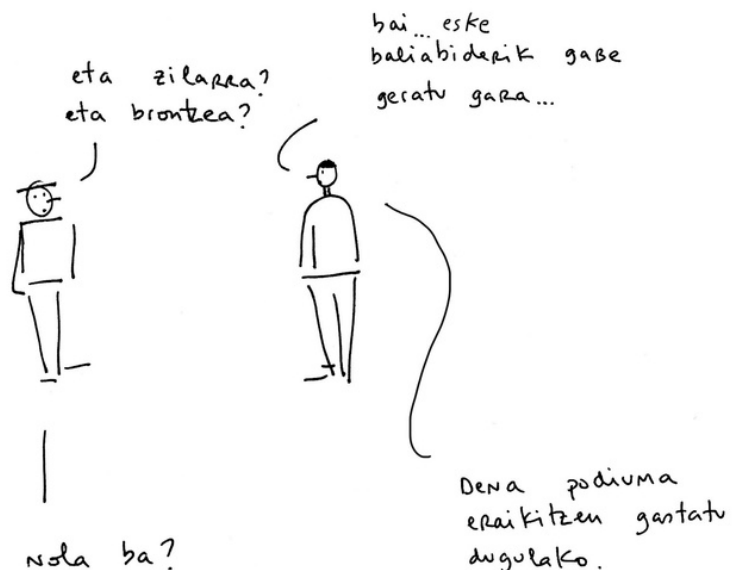 eta zilarra?
eta brontzea?
bai... eske
baliabiderik gabe
geratu gara...
Nola ba?
Dena podiuma
eraikitzen gastatu
dugulako.